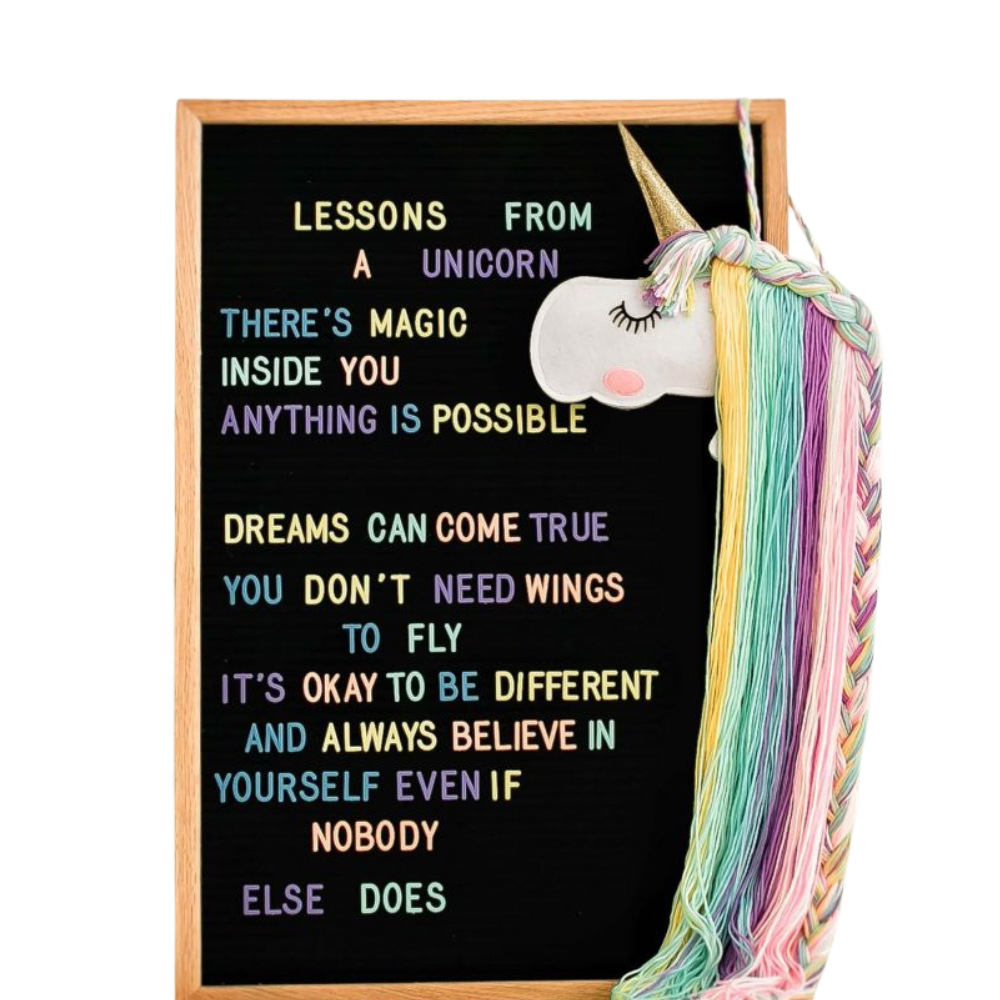 LESSONS FROM
A UNICORN
THERE'S MAGIC
INSIDE YOU
ANYTHING IS POSSIBLE
DREAMS CAN COME TRUE
YOU DON'T NEED WINGS
TO FLY
IT'S OKAY TO BE DIFFERENT
AND ALWAYS BELIEVE IN
YOURSELF EVEN IF
NOBODY
ELSE DOES